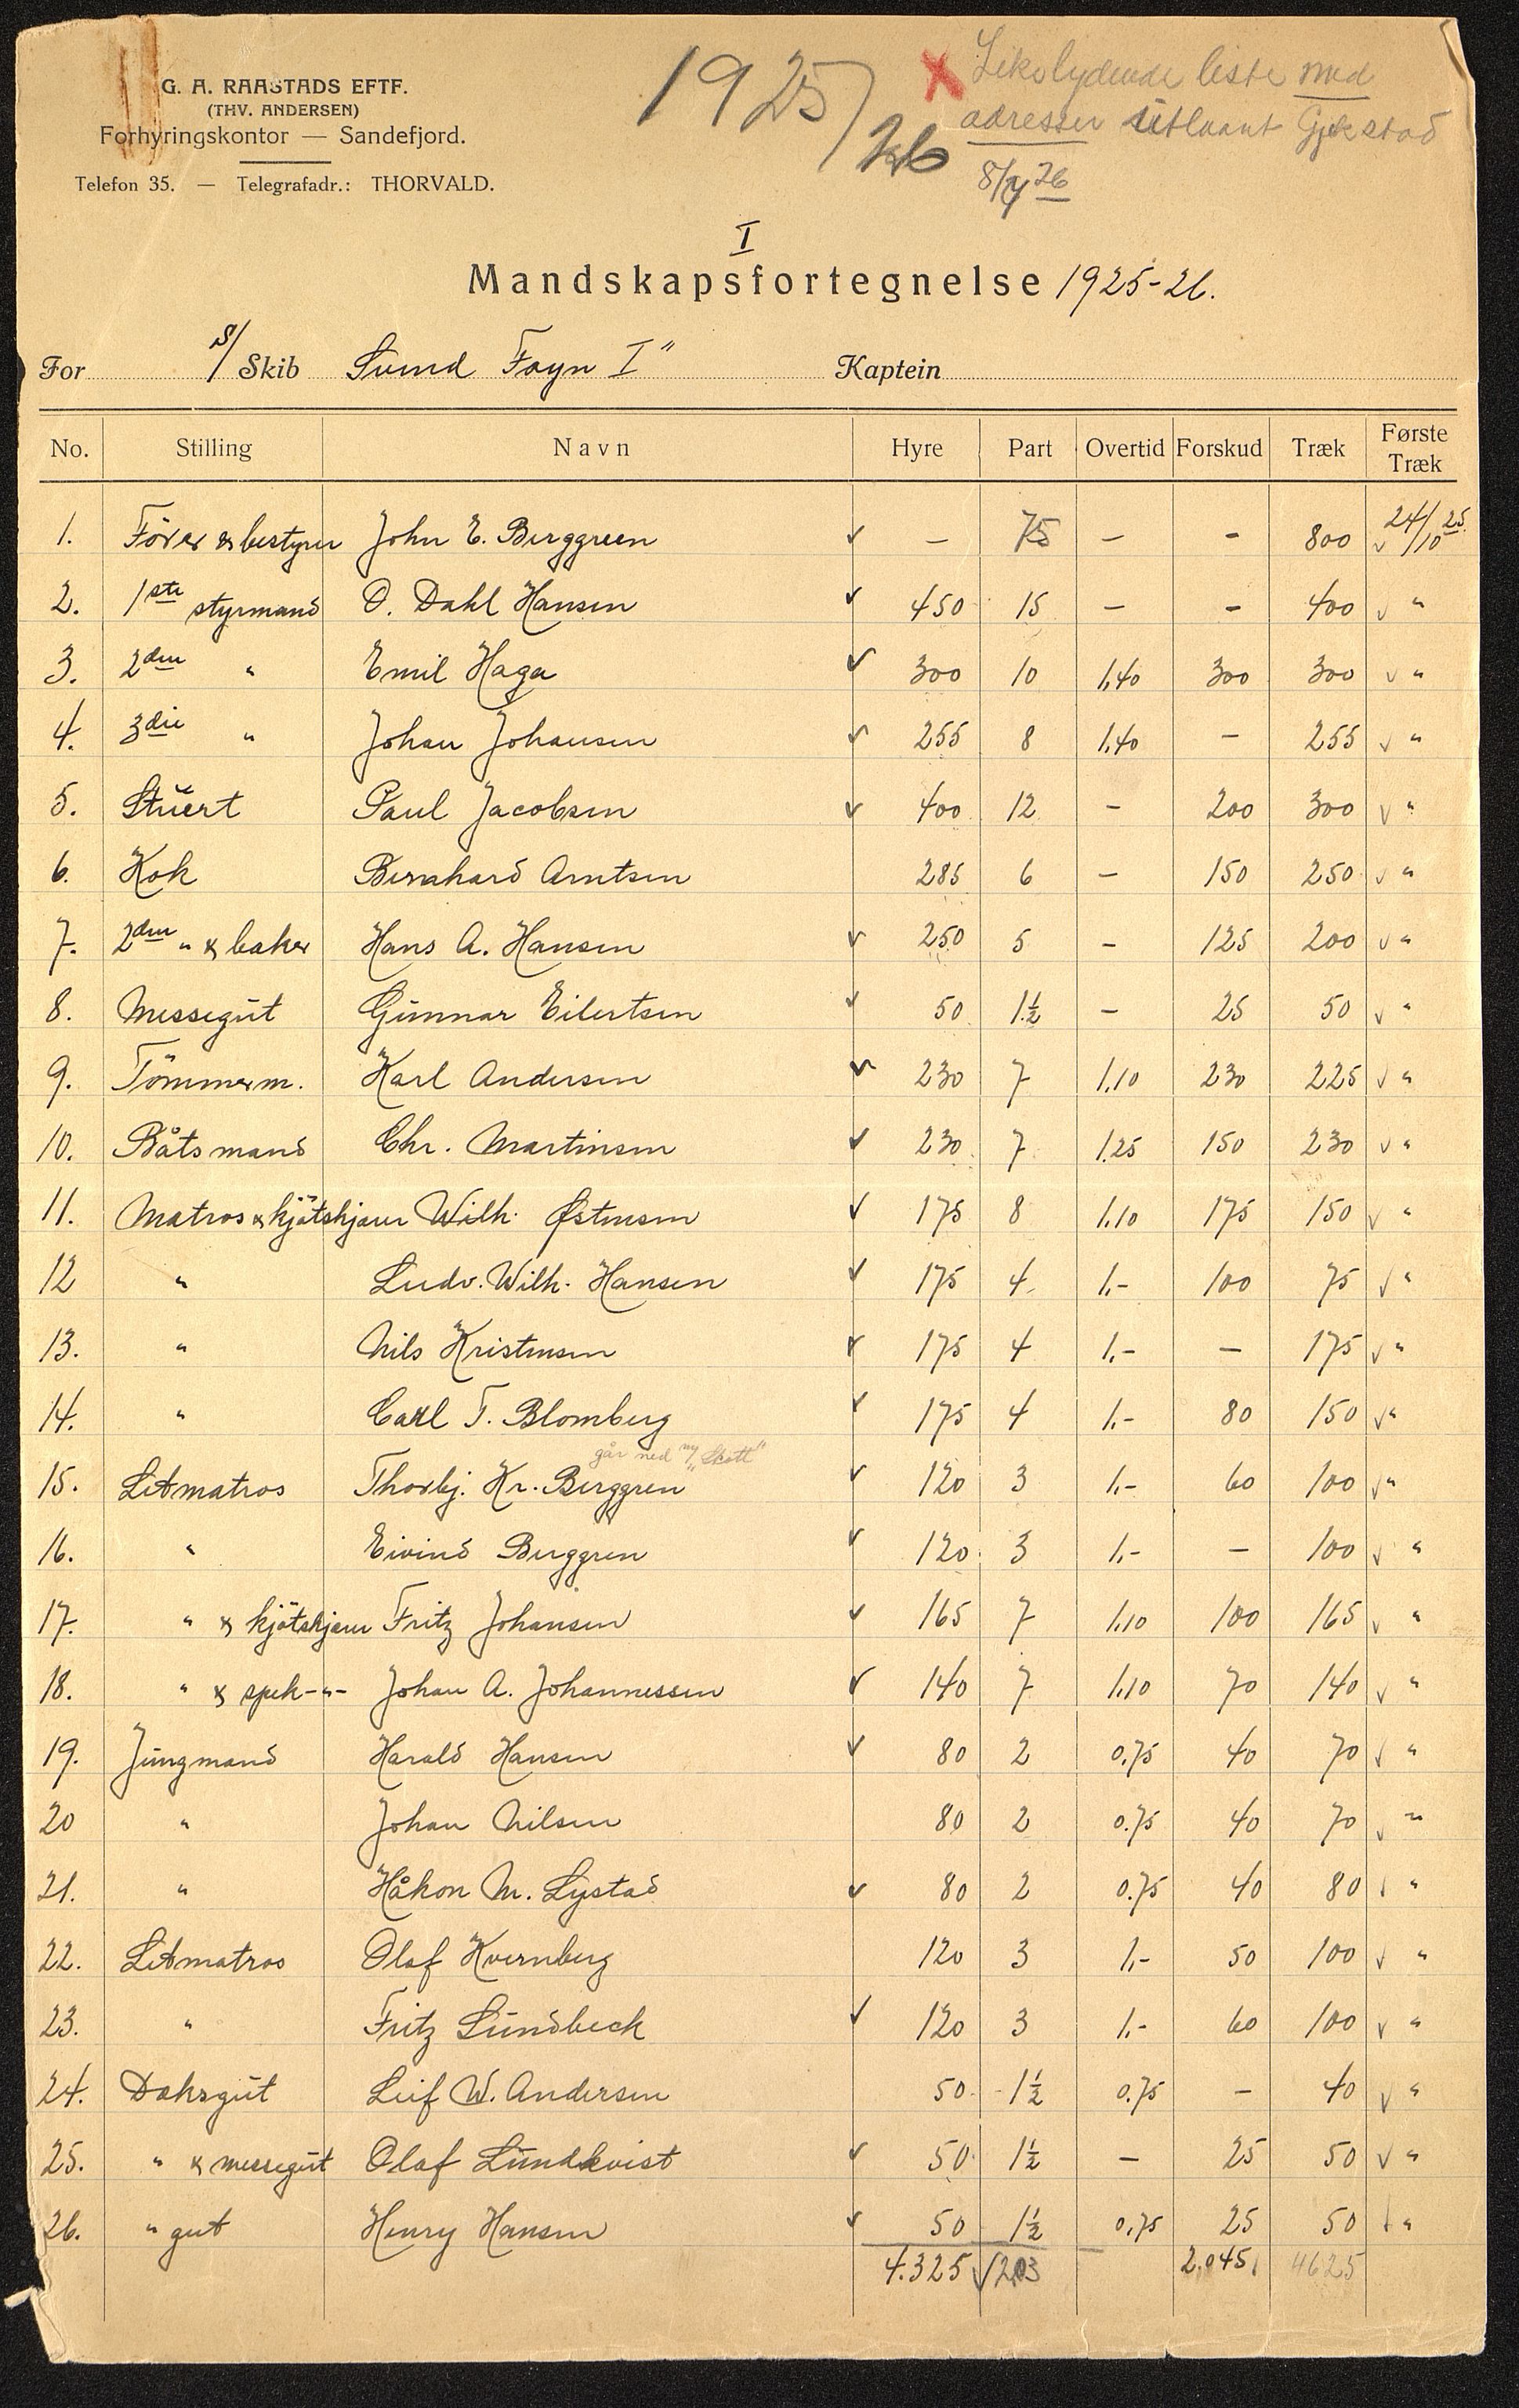 G. A. RAASTADS EFTF.
(THV. ANDERSEN)
Forhyringskontor — Sandefjord.
Telefon 35. — Telegrafadr.: THORVALD.
1925/26
X Likelydende liste med
adresser utlaant Gjekstad
8/4 26
I
Mandskapsfortegnelse 1925-26.
For S/ Skib Svend Foyn I" Kaptein
No. Stilling Navn Hyre Part Overtid Forskud Træk Første Træk
1. Förer & bestyrer John E. Berggreen ✓ — 75 — - 800 ✓ 24/10 25.
2. 1ste styrmand O. Dahl Hansen ✓ 450 15 — - 400 ✓ "
3. 2den " Emil Haga ✓ 300 10 1,40 300 300 ✓ "
4. 3die " Johan Johansen ✓ 255 8 1,40 — 255 ✓ "
5. Stuert Paul Jacobsen ✓ 400 12 — 200 300 ✓ "
6. Kok Bernhard Arntsen 285 6 — 150 250 ✓ "
7. 2den " & baker Hans A. Hansen ✓ 250 5 — 125 200 ✓ "
8. Messegut Gunnar Eilertsen ✓ 50 1½ — 25 50 ✓ "
9. Tömmerm. Karl Andersen ✓ 230 7 1,10 230 225 ✓ "
10. Båtsmand Chr. Martinsen ✓ 230 7 1.25 150 230 ✓ "
11. Matros & kjötskjærer Wilh. Østensen ✓ 175 8 1,10 175 150 ✓ "
12 " Ludv. Wilh. Hansen ✓ 175 4 1,- 100 75 ✓ "
13. " Nils Kristensen ✓ 175 4 1,- — 175 ✓ "
14. " Carl T. Blomberg ✓ 175 4 1,- 80 150 ✓ "
går ned m/ "Skott"
15. Letmatros Thorbj. Kr. Berggren ✓ 120 3 1,- 60 100 ✓ "
16. " Eivind Berggren ✓ 120 3 1,- — 100 ✓ "
17. " & kjötskjærer Fritz Johansen ✓ 165 7 1,10 100 165 ✓ "
18. " & spek-"- Johan A. Johannessen ✓ 140 7 1,10 70 140 ✓ "
19. Jungmand Harald Hansen ✓ 80 2 0.75 40 70 ✓ "
20 " Johan Nilsen 80 2 0.75 40 70 ✓ "
21. " Håkon M. Lystad ✓ 80 2 0.75 40 80 ✓ "
22. Letmatros Olaf Kvernberg 120 3 1,- 50 100 ✓ "
23. " Fritz Lundbeck ✓ 120 3 1.- 60 100 ✓ "
24. Dæksgut Leif W. Andersen 50 1½ 0.75 — 40 ✓ "
25. " & messegut Olaf Lundkvist ✓ 50 1½ — 25 50 ✓ "
26. " gut Henry Hansen ✓ 50 1½ 0,75 25 50 ✓ "
4.325 ✓ 203 2.045 4625